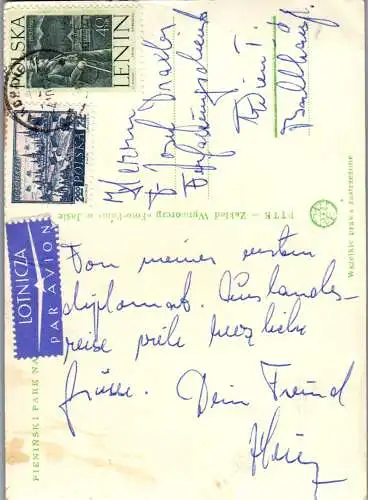 POLSKA
LENIN
POLSKA
LOTNICZA
PAR AVION
Herrn
Dr Josef
Wien I.
Ballhauspl.
PTTK – Zakład Wytwórczy »Foto-Pam« w Jaśle
Wszelkie prawa zastrzeżone
PIENIŃSKI PARK NA
Von meiner ersten
diplomat. Auslands-
reise viele herzliche
Grüsse. Dein Freund
Heinz